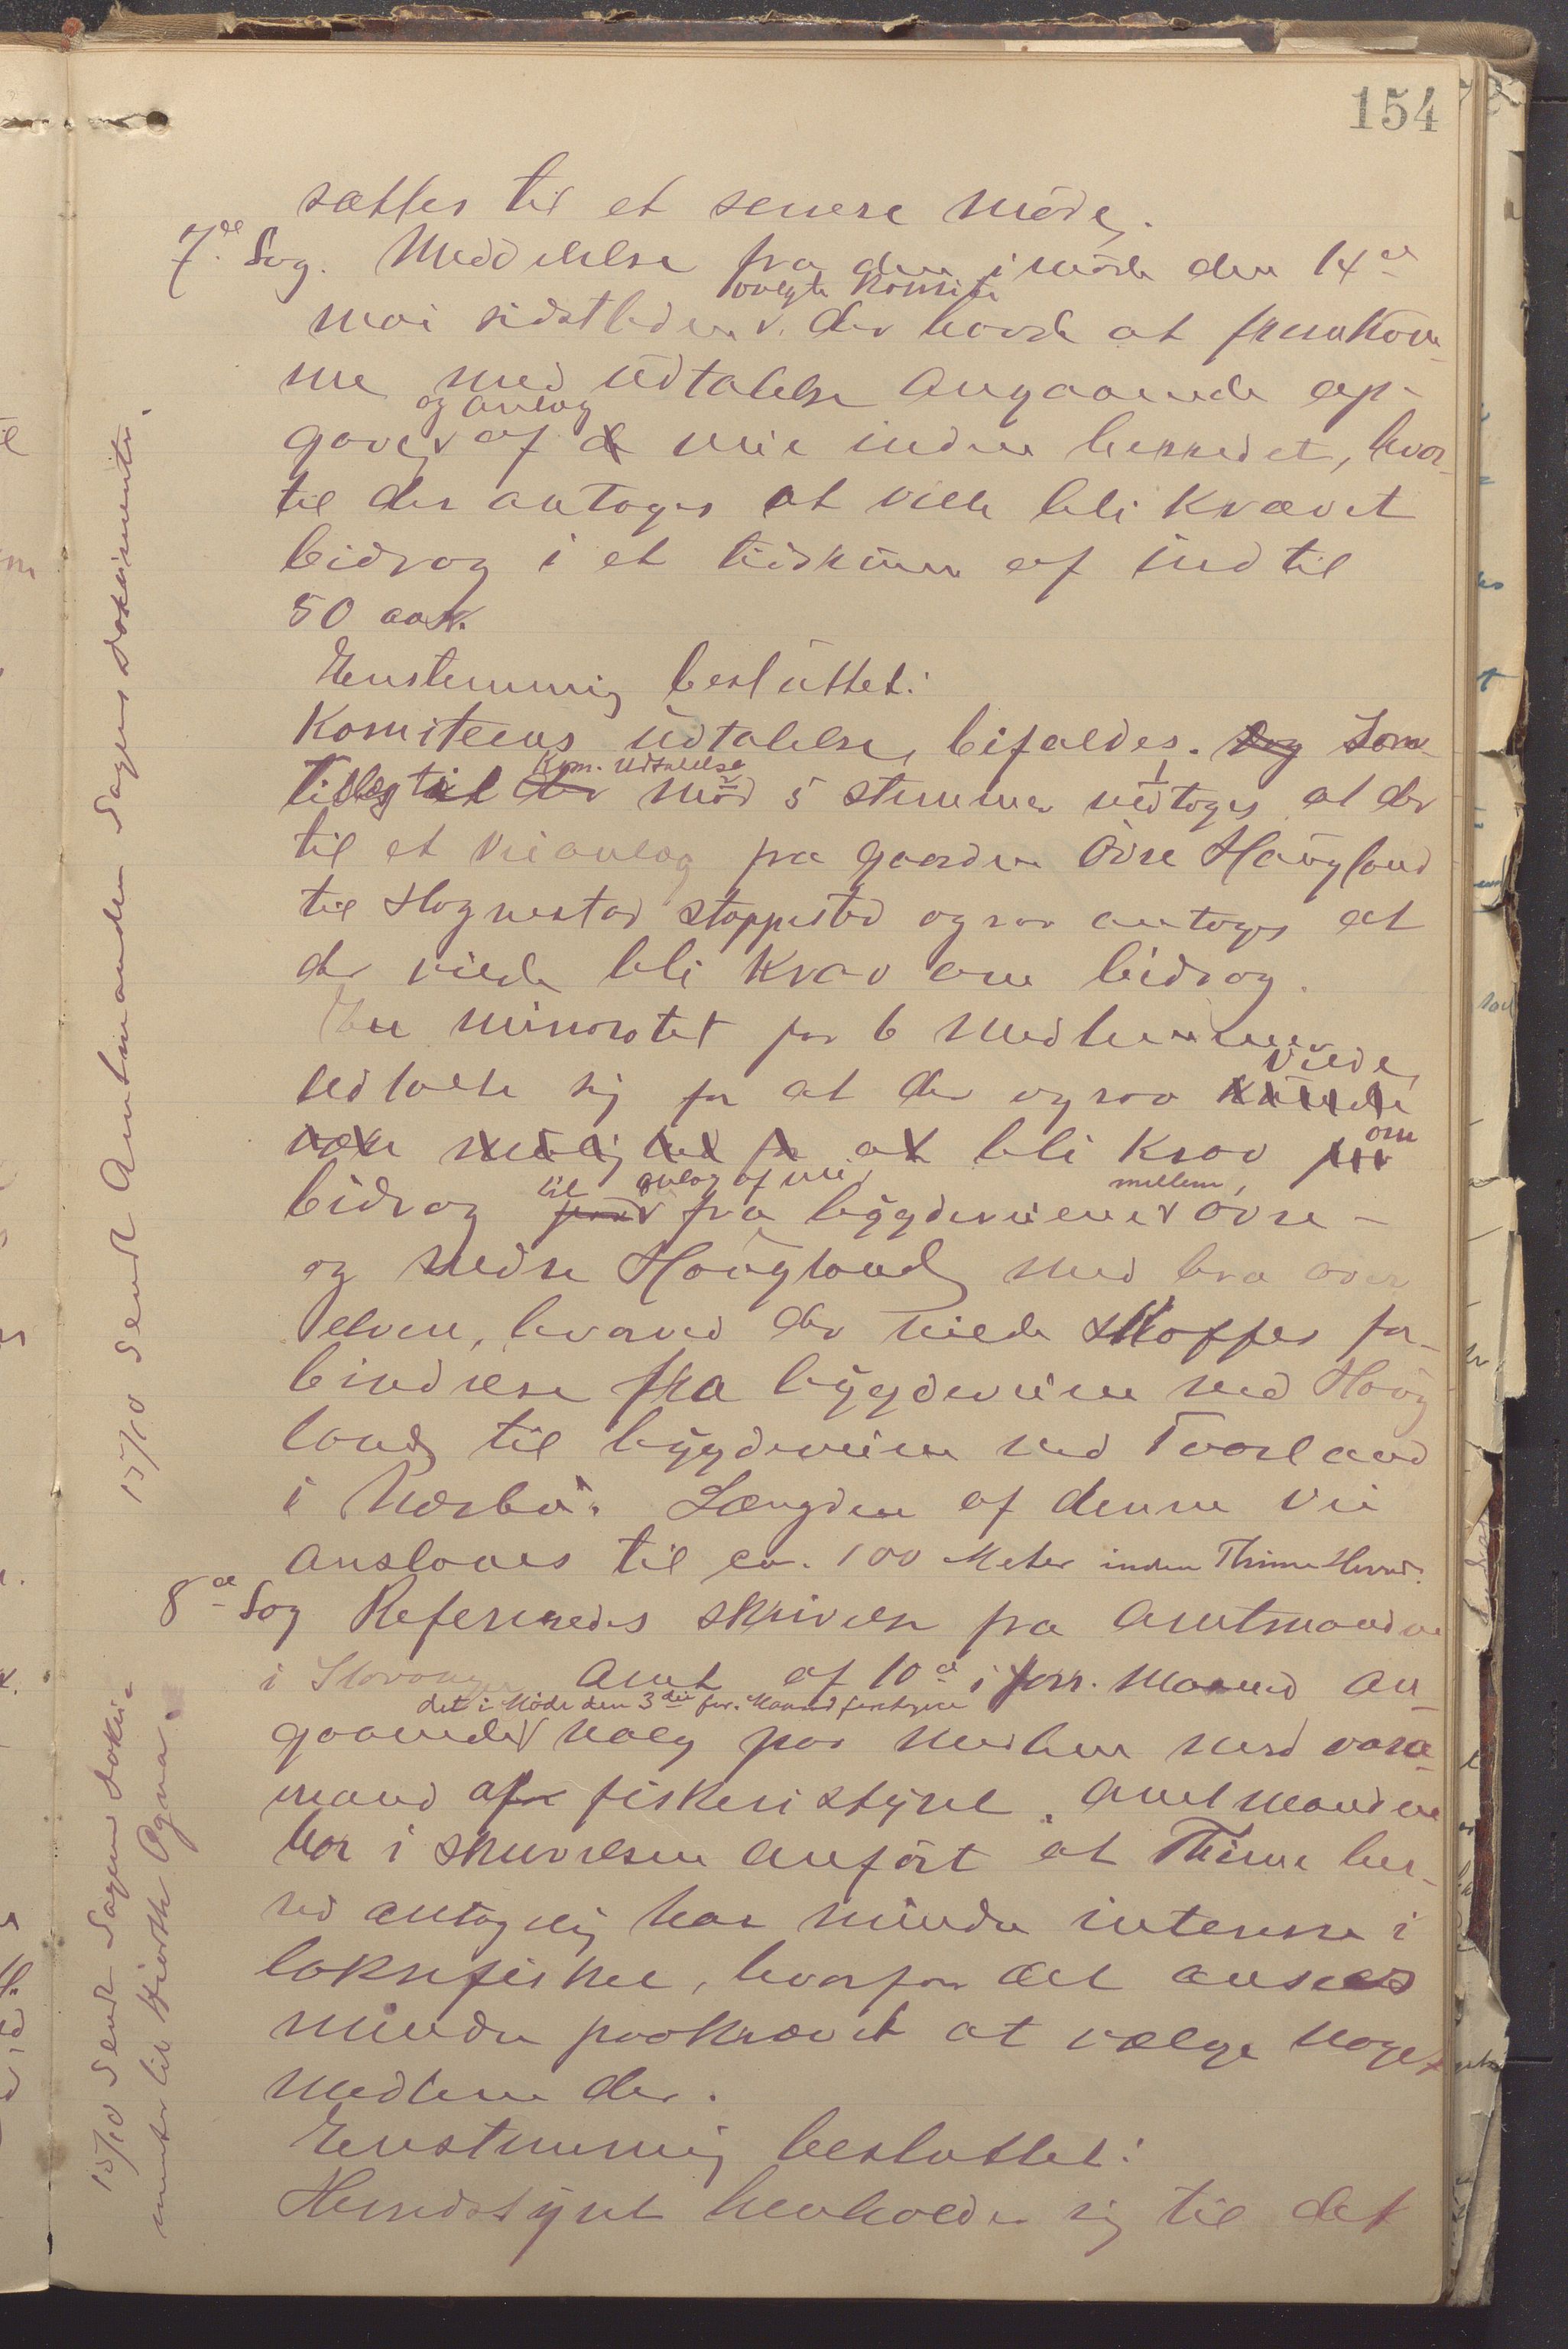 154
sættes til et senere møde.
7de Sag. Meddelelse fra den i møde den 14de
valgte Komite
mai sidstleden v. der havde at fremkom-
me med udtalelse angaaende op-
og anlæg
gaver v af veie inden herredet, hvor-
til der antoges at ville bli krævet
bidrag i et tidsrum af indtil
50 aar.
Enstemmig besluttet:
Komiteens udtalelse, bifaldes. Som
Kom. Udtalelse
tillæg til mod 5 stemmer vedtoges at der
til et veianlæg fra gaarden Øvre Haugland
til Hognestad stoppested ogsaa antoges at
der vilde bli krav om bidrag.
En minoritet paa 6 medlemmer
vilde,
udtalte sig for at der ogsaa
om
at bli krav
til anlæg af vei, mellem,
bidrag fra bygdeveiene v øvre-
og nedre Haugland med bro over
elven, hvorved der vilde skaffes for-
bindelse fra bygdeveien ved Haug
land til bygdeveien ved Tvorland
i Nærbø. Længden af denne vei
anslaaes til ca. 100 Meter inden Thime Herred.
8de Sag Refereredes skrivelse fra Amtmanden
i Stavanger Amt af 10de i forr. Maaned an-
det i Møde den 3die for. Maaned foretagne
gaaende v valg paa medlem med vara-
mand af fiskeristyret. Amtmanden
har i skrivelsen anført at Thime her-
red antagelig har mindre interesse i
laksefisket, hvorfor det ansees
mindre paakrævet at vælge noget
medlem der.
Enstemmig besluttet:
Herredsstyret henholder sig til det
15/10 Sendt Amtmanden Sagens dokumenter.
15/10 Sendt Sagens doku-
menter til Hjorth Ogna.